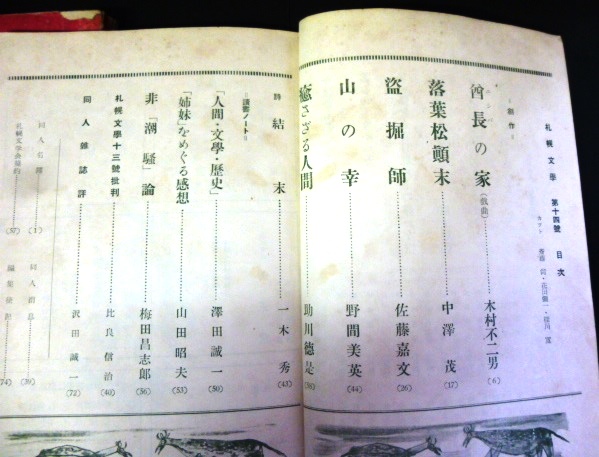 札幌文學 第十四號 目次
カット
=創作=
酋長の家(戯曲)……木村不二男(6)
落葉松顚末……中澤茂(17)
盜掘師……佐藤嘉文(26)
山の幸……野間美英(44)
癒さざる人間……助川德是
詩 結末……一木秀(43)
=讀書ノート=
「人間・文學・歴史」……澤田誠一(50)
「姉妹」をめぐる感想……山田昭夫(53)
非「潮騒」論……梅田昌志郎(56)
札幌文學十三號批判……比良信治(40)
同人雜誌評……沢田誠一(72)
同人名簿……(1) 同人消息……(39)
札幌文学会規約……(57) 編集後記……(74)